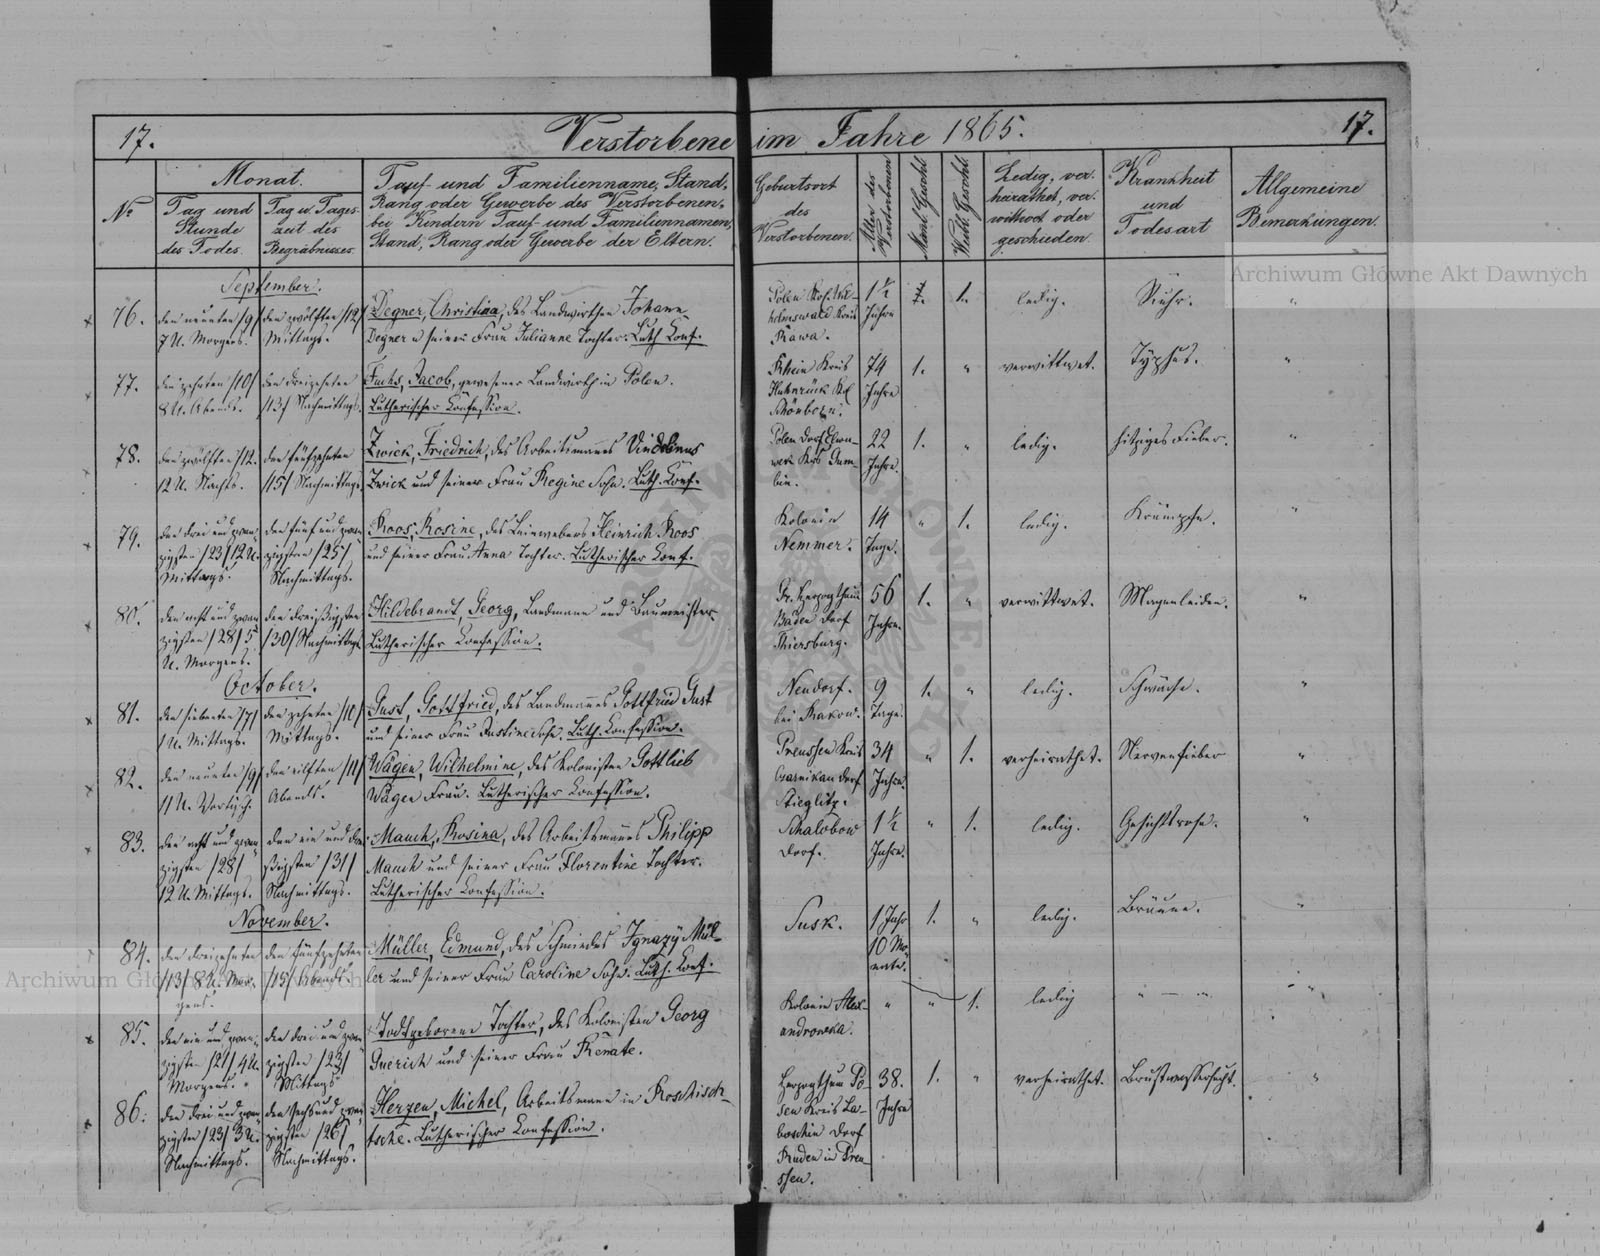 17.
Verstorbene im Jahre 1865.
17.
№
Monat.
Tag und
Stunde
des Todes.
Tag u. Tages-
zeit des
Begräbnisses.
Tauf- und Familienname, Stand,
Rang oder Gewerbe des Verstorbenen,
bei Kindern Tauf- und Familiennamen,
Stand, Rang oder Gewerbe der Eltern.
Geburtsort
des
Verstorbenen.
Alter des
Verstorbenen
Mänl. Geschl.
Weibl. Geschl.
Ledig, ver-
heirathet, ver-
wittwet oder
geschieden.
Krankheit
und
Todesart
Allgemeine
Bemerkungen.
September.
76.
den neunten /9/
7 U. Morgens.
den zwölften /12/
Mittags.
Degner, Christina, des Landwirthen Johann
Degner u seiner Frau Julianne Tochter. Luth. Conf.
Polen Kol. Wil-
helmswald Kreis
Rawa.
1½
Jahre
1.
ledig.
Ruhr.
"
77.
den zehnten /10/
8 U. Abends.
den dreizehnten
/13/ Nachmittags.
Fuchs, Jacob, gewesener Landwirth in Polen.
Lutherischer Confession.
Rhein Kreis
Hunsrück
Schönborn.
74
Jahre
1.
"
verwittwet.
Typhus.
"
78.
den zwölften /12.
12 U. Nachts.
den fünfzehnten
/15/ Nachmittags.
Zwick, Friedrich, des Arbeitsmannes
Zwick und seiner Frau Regine Sohn. Luth. Conf.
Polen Dorf
22
Jahre.
1.
"
ledig.
hitziges Fieber.
"
79.
den drei und zwan-
zigsten /23/ 12 U.
Mittags.
den fünf und zwan-
zigsten /25/
Nachmittags.
Roos, Rosine, des Leinwebers Heinrich Roos
und seiner Frau Anna Tochter. Lutherischer Conf.
Kolonie
Nemmer.
14
Tage.
"
1.
ledig.
Krämpfe.
"
80.
den acht und zwan-
zigsten /28/ 5
U. Morgens.
den dreißigsten
/30/ Nachmittags
Hildebrandt, Georg, Landmann und Baumeister
Lutherischer Confession.
Gr. Herzogthum
Baden Dorf
Thiersburg.
56
Jahre.
1.
"
verwittwet.
Magenleiden.
"
October.
81.
den siebenten /7/
1 U. Mittags.
den zehnten /10/
Mittags.
Gust, Gottfried, des Landmannes Gottfried Gust
und seiner Frau Justine Sohn. Luth. Confession.
Neudorf.
bei Rakow.
9
Tage.
1.
"
ledig.
Schwäche.
"
82.
den neunten /9/
11 U. Vortags.
den eilften /11/
Abends.
Wagen, Wilhelmine, des Kolonisten Gottlieb
Wagen Frau. Lutherischer Confession.
Preussen Kreis
Czarnikau Dorf
Stieglitz.
34
Jahre.
"
1.
verheirathet.
Nervenfieber
"
83.
den acht und zwan-
zigsten /28/
12 U. Mittags.
den ein und drei-
ßigsten /31/
Nachmittags.
Mauch, Rosina, des Arbeitsmannes Philipp
Mauch und seiner Frau Florentine Tochter.
Lutherischer Confession.
Schalobow
Dorf.
1½
Jahre.
"
1.
ledig.
Gesichtsrose.
"
November.
84.
den dreizehnten
/13/ 8 U. Mor-
gens.
den fünfzehnten
/15/ Abends
Müller, Edmund, des Schmiedes Ignazÿ Mül-
ler und seiner Frau Caroline Sohn. Luth. Conf.
Susk.
1 Jahr
10 Mo-
nate.
1.
"
ledig.
Bräune.
"
85.
den ein und zwan-
zigsten /21/ 4 U.
Morgens.
den drei und zwan-
zigsten /23/
Mittags
Todtgeborene Tochter, des Kolonisten Georg
Guerich und seiner Frau Renate.
Kolonie Alex-
androwka.
"
"
1.
ledig
" — "
"
86.
den drei und zwan-
zigsten /23/ 3 U.
Nachmittags.
den sechs und zwan-
zigsten /26/
Nachmittags.
Herzen, Michel, Arbeitsmann in Roschisch-
tsche. Lutherischer Confession.
Herzogthum Po-
sen Kreis La-
boschin Dorf
Ruden in Preu-
ssen.
38.
Jahre
1.
"
verheirathet.
Brustwassersucht.
"
Archiwum Główne Akt Dawnych
Archiwum Główne Akt Dawnych